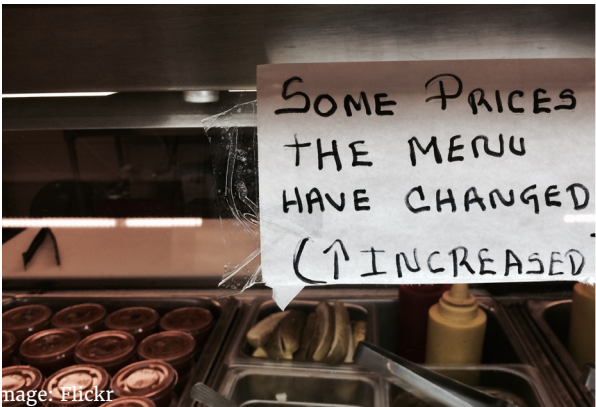 SOME PRICES
THE MENU
HAVE CHANGED
(↑ INCREASED
mage: Flickr